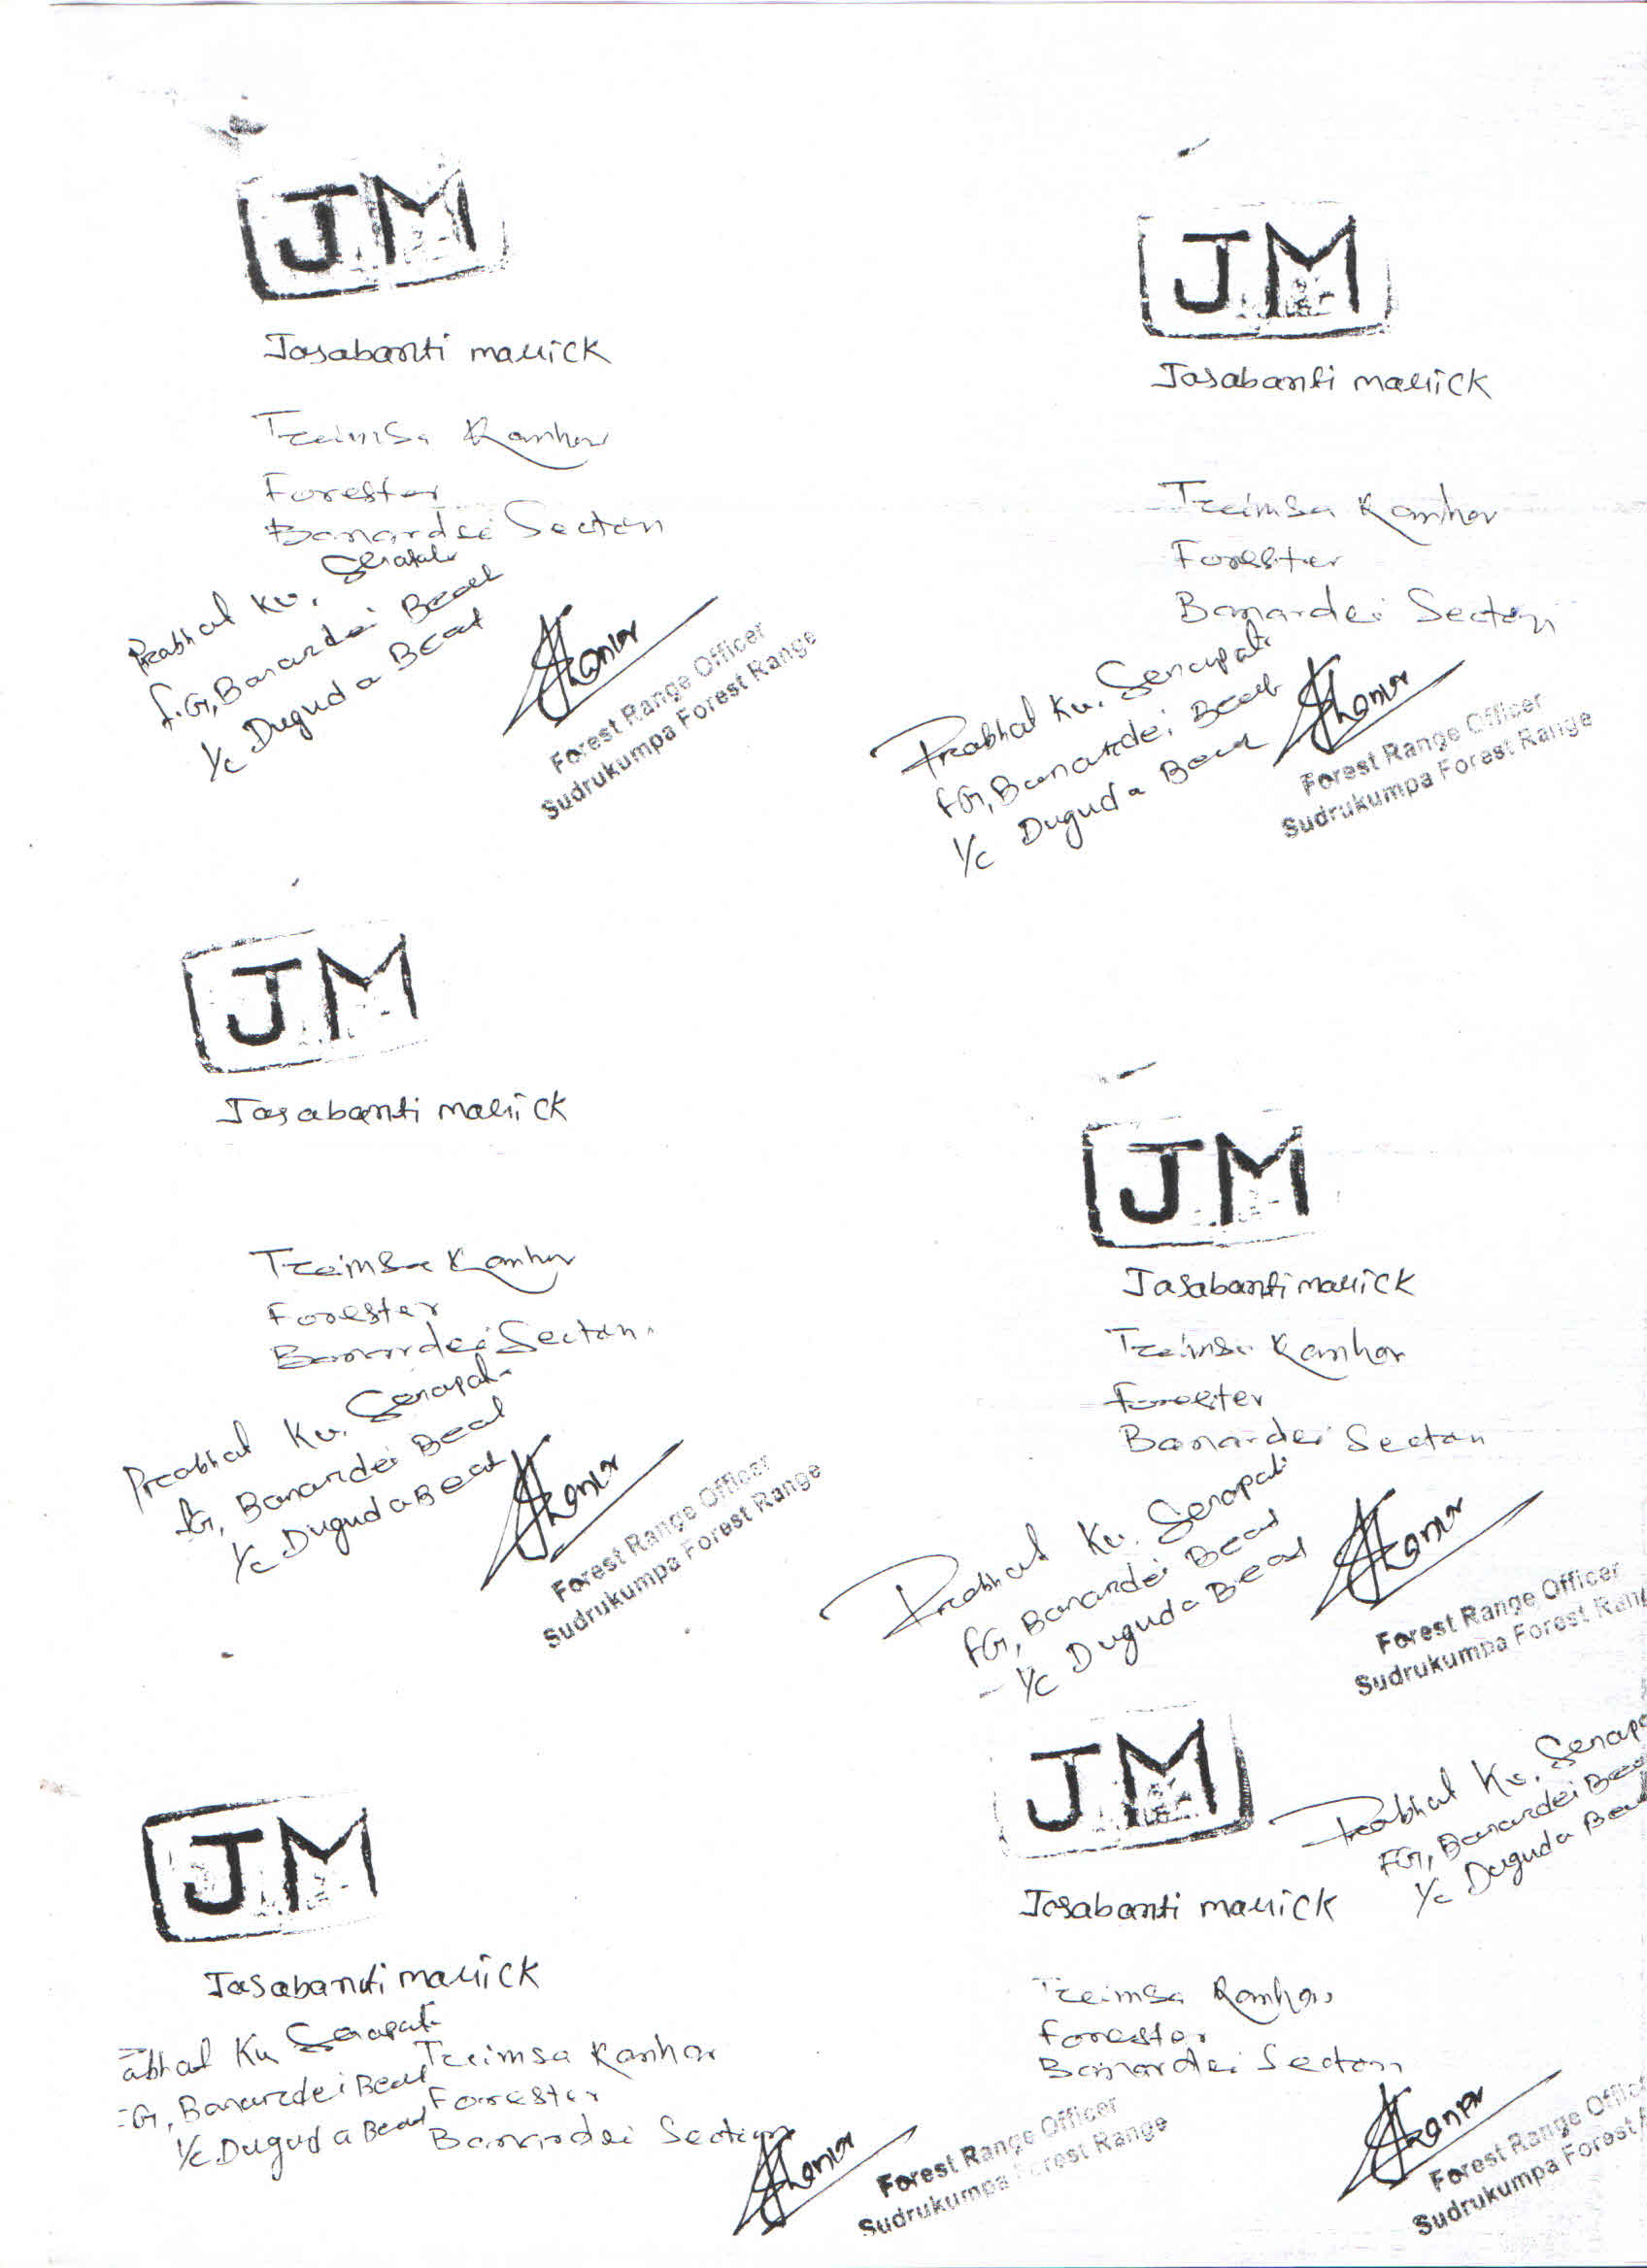 JM
Jasabanti mallick
Treimsa Kanhar
Forester
Banardei Section
Prabhat Ku. Senapati
F.G, Banardei Beat
I/c Duguda Beat
Forest Range Officer
Sudrukumpa Forest Range
JM
Jasabanti mallick
Treimsa Kanhar
Forester
Banardei Section
Prabhat Ku. Senapati
FG, Banardei Beat
I/c Duguda Beat
Forest Range Officer
Sudrukumpa Forest Range
JM
Jasabanti mallick
Treimsa Kanhar
Forester
Banardei Section
Prabhat Ku. Senapati
FG, Banardei Beat
I/c Duguda Beat
Forest Range Officer
Sudrukumpa Forest Range
JM
Jasabanti mallick
Treimsa Kanhar
Forester
Banardei Section
Prabhat Ku. Senapati
FG, Banardei Beat
I/c Duguda Beat
Forest Range Officer
Sudrukumpa Forest Rang
JM
Jasabanti mallick
abhat Ku Senapati
G, Banardei Beat
I/c Duguda Beat
Treimsa Kanhar
Forester
Banardei Section
Forest Range Officer
Sudrukumpa Forest Range
JM
Prabhat Ku. Senapa
FG, Banardei Bea
I/c Duguda Bea
Jasabanti mallick
Treimsa Kanhar
Forester
Banardei Section
Forest Range Offic
Sudrukumpa Forest